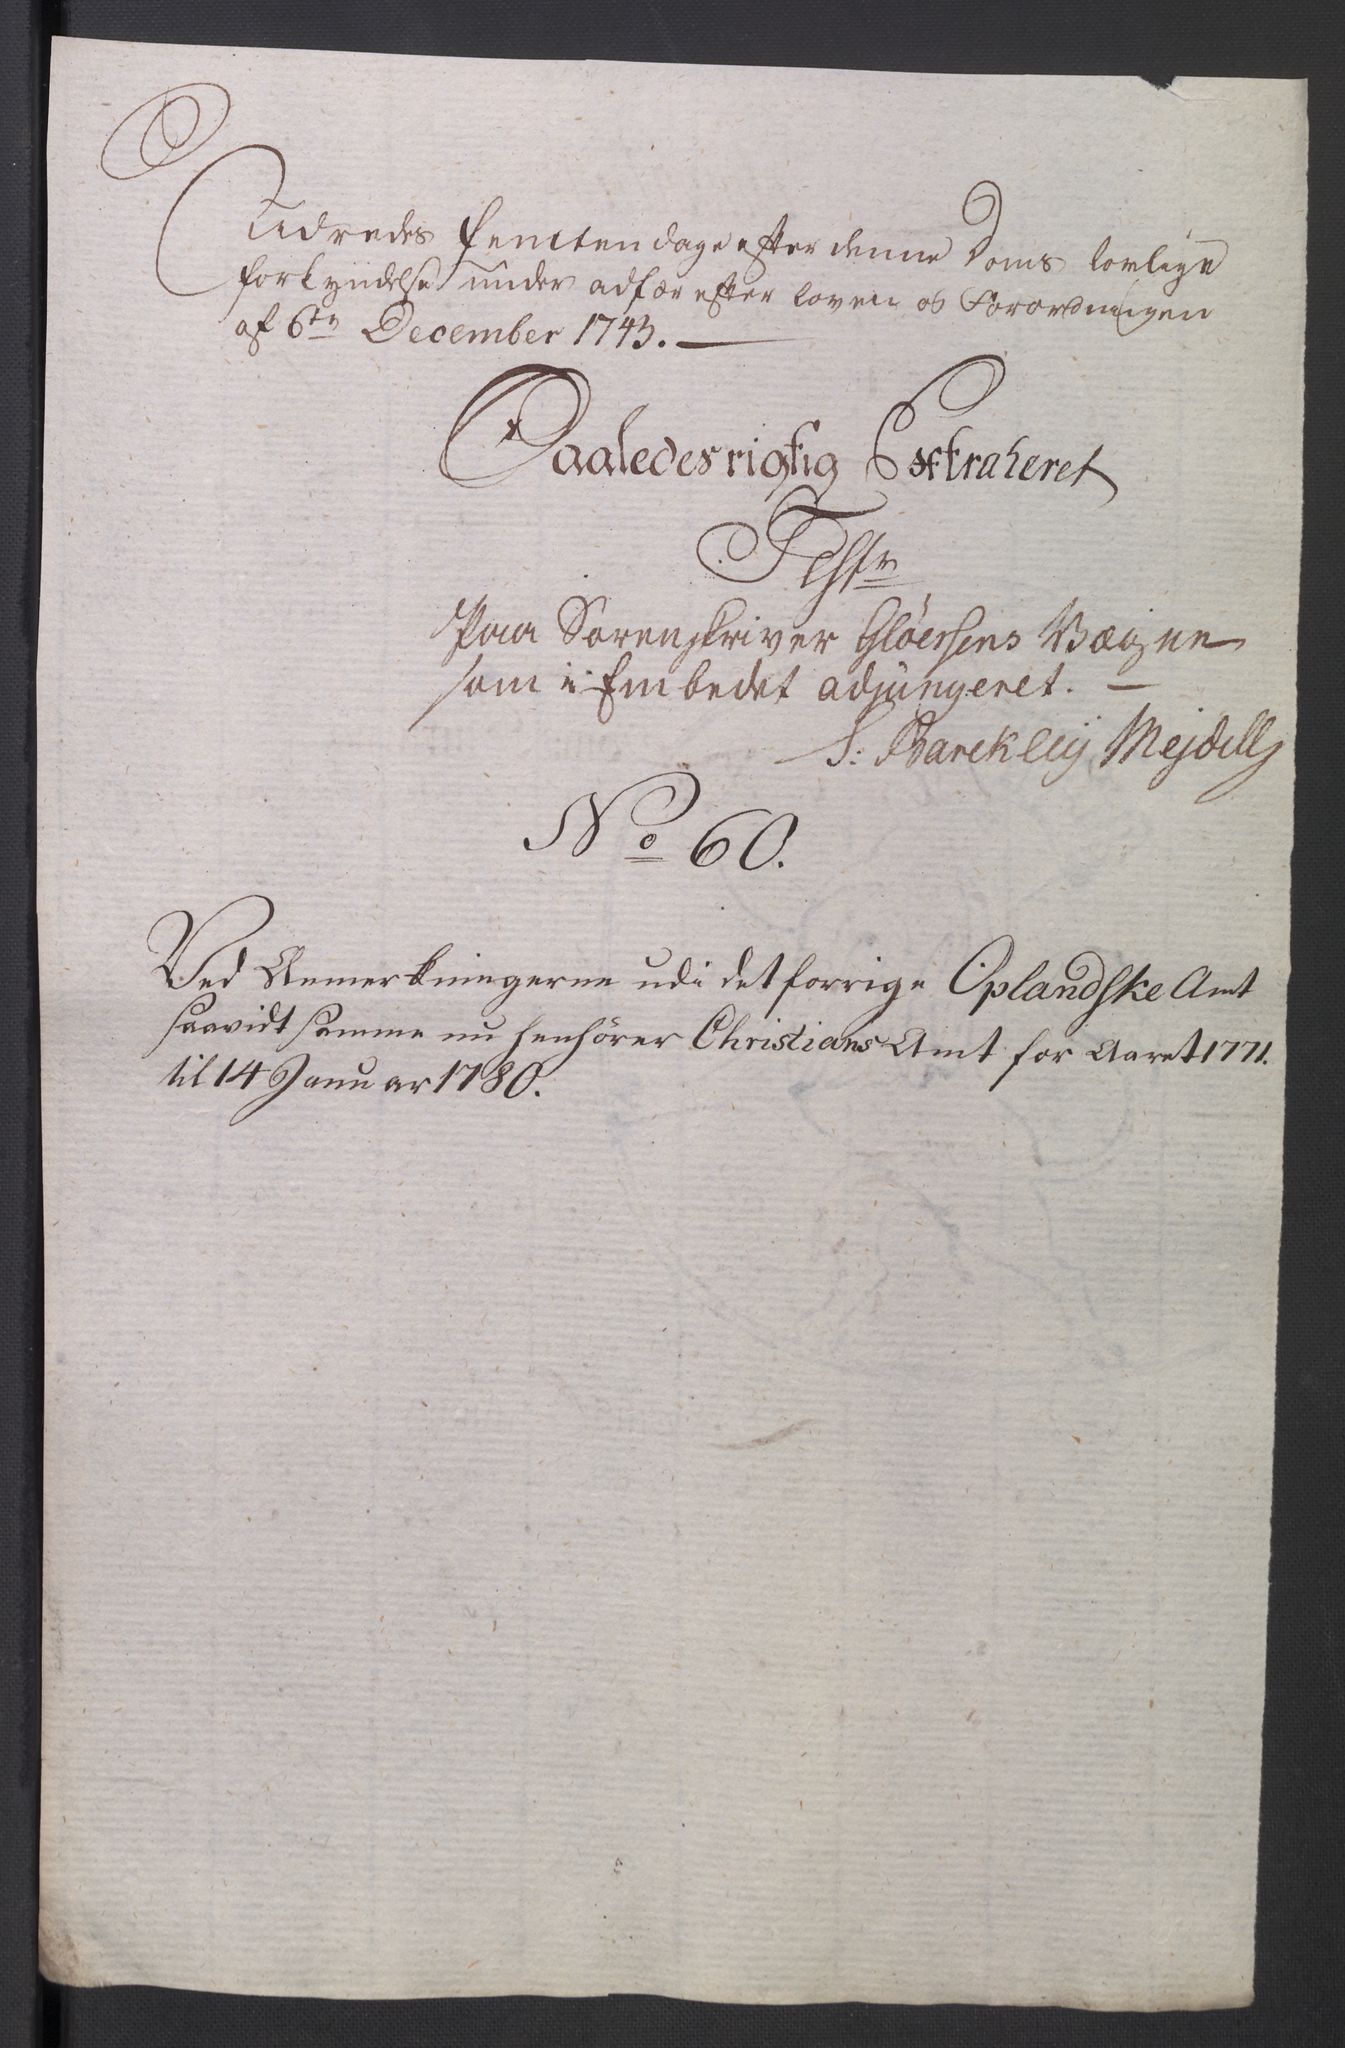 Udredes femten dage efter denne Doms lovlige
forkyndelse under adfær efter loven og Forordningen
af 6te December 1743. —
Saaledes rigtig Extraheret
Teste
Paa Sorenskriver Gløersens Vægne
som i Embedet adjungeret. —
S: Barckleÿ Mejdell
No 60.
Ved Anmerkningerne udi det forrige Oplandske Amt
saavidt samme nu henhörer Christians Amt for Aaret 1771.
til 14 Januar 1780.